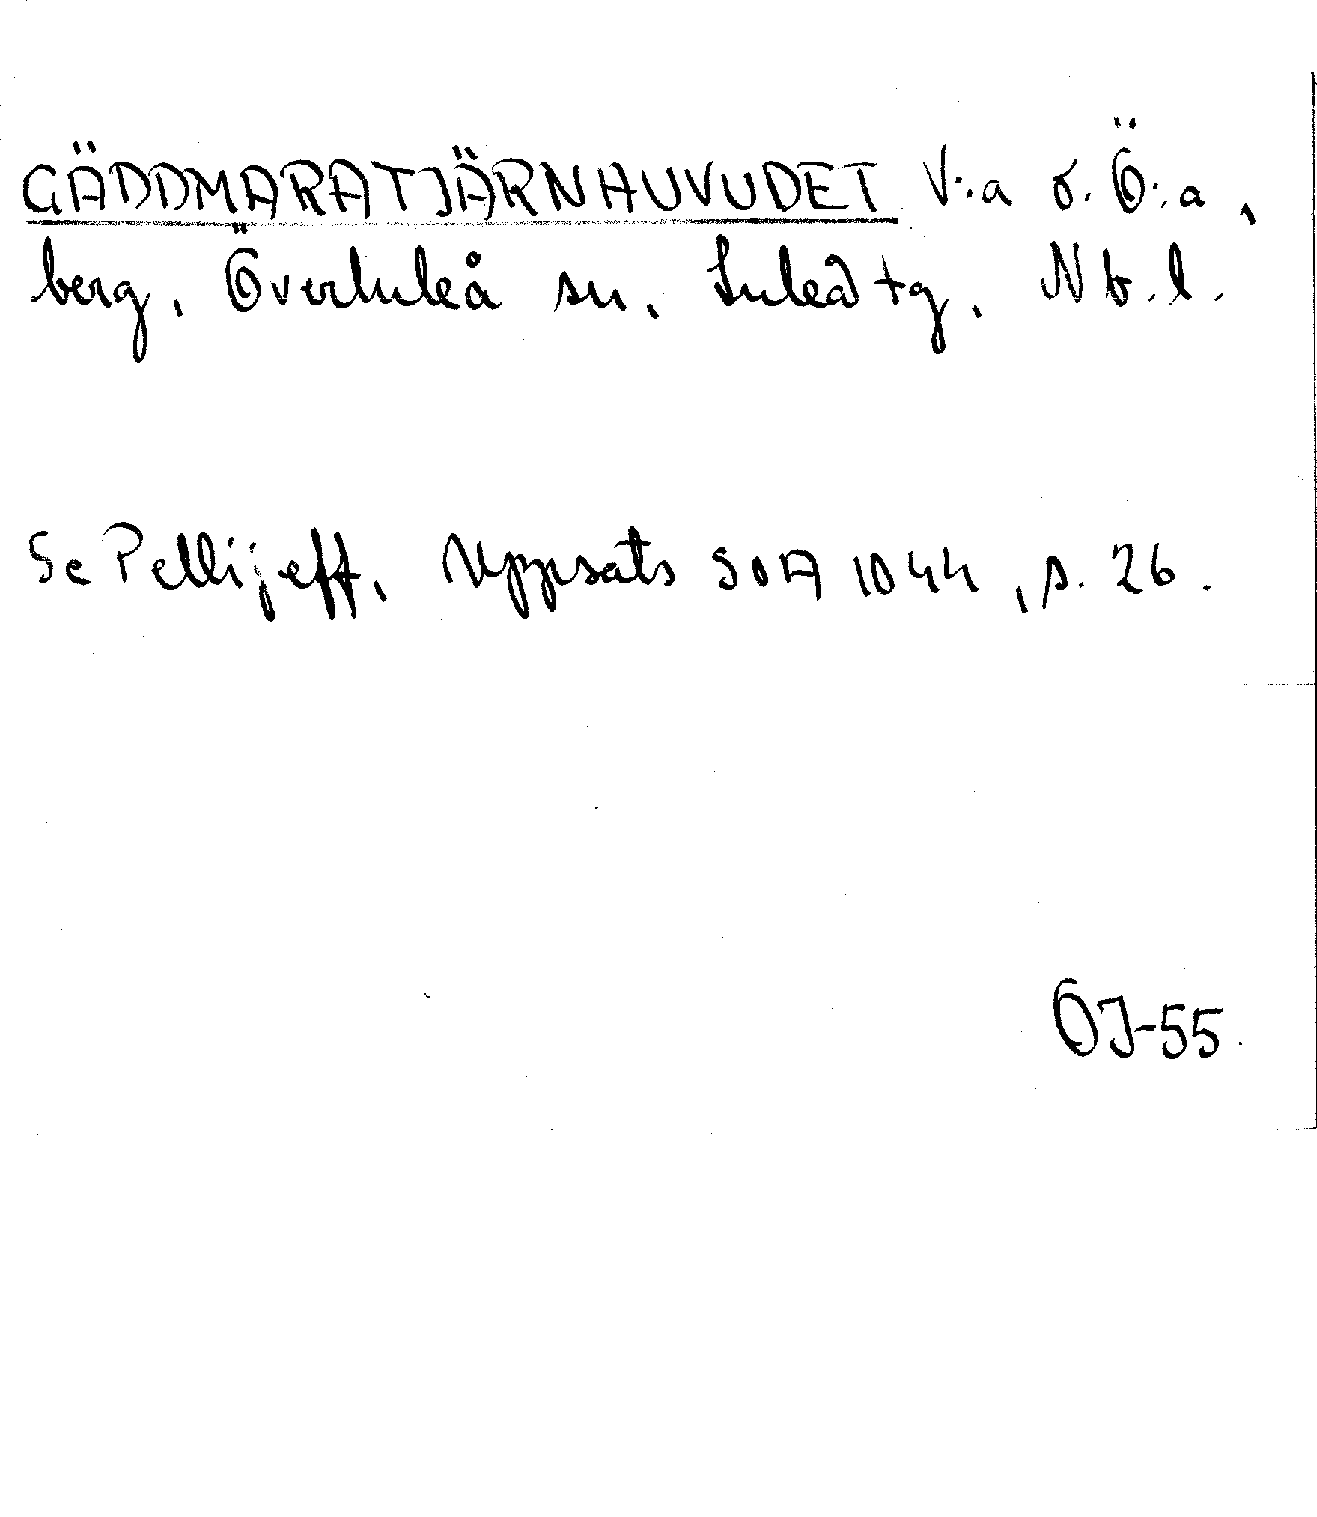 GÄDDMARATJÄRNHUVUDET V:a o. Ö:a,
berg, Överluleå sn, Luleå tg, Nb.l.
Se Pellijeff, Uppsats SOA 1044, s. 26.
ÖJ-55.